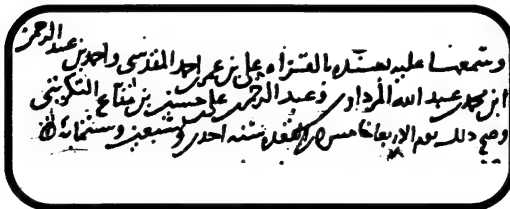 وسمعها عليه بسنده بالقراءه علي بن عمر بن احمد المقدسي واحمد بن عبد الرحمن
ابن محمد بن عبد الله المرداوي وعبد الرحمن علي حسين بن مناع التكريتي
وصح ذلك يوم الاربعا خامس ذي القعده سنه احدى وسبعين وستمائة